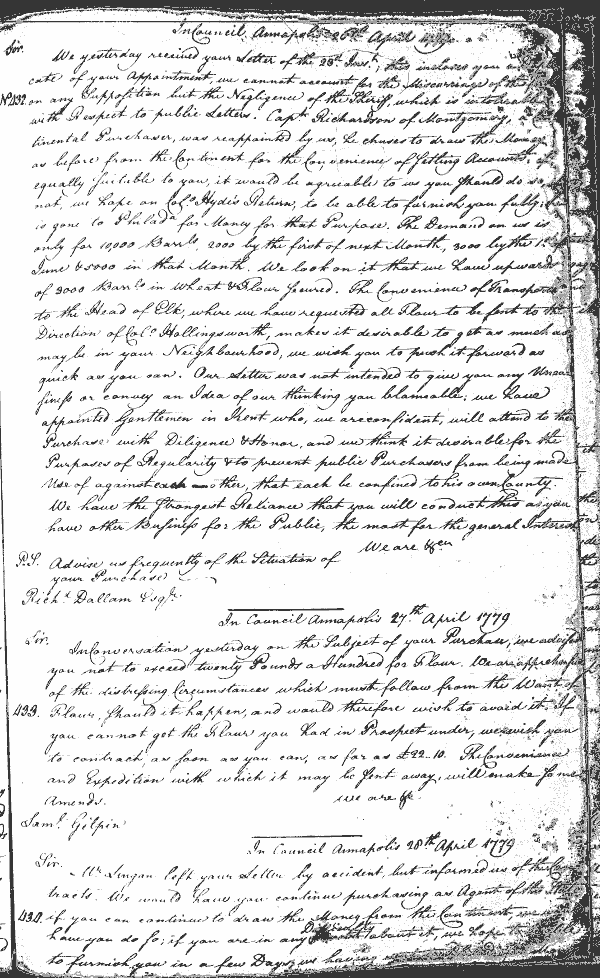 In Council Annapolis 26th April 1779
Sir.
We yesterday received your Letter of the 23d Inst, this incloses you
cate of your Appointment, we cannot account for the Miscarriage of the
No 432 on any Supposition but the Negligence of the Sheriff, which is intolerable
with Respect to public Letters. Capt Richardson of Montgomery, a Con
tinental Purchaser, was reappointed by us, he chuses to draw the Money
as before from the Continent for the Convenience of settling Accounts, if
equally suitable to you, it would be agreeable to us you should do so, if
not, we hope on Colo Hyde's Return, to be able to furnish you fully, he
is gone to Philada for Money for that Purpose. The Demand on us is
only for 10,000 Barrls, 2000 by the first of next Month, 3000 by the 1st
June & 5000 in that Month. We look on it that we have upwards
of 3000 Barrls in Wheat & Flour secured. The Convenience of Transport
to the Head of Elk, where we have requested all Flour to be sent to the
Direction of Colo Hollingsworth, makes it desirable to get as much as
may be in your Neighbourhood, we wish you to push it forward as
quick as you can. Our Letter was not intended to give you any Unea
siness or convey an Idea of our thinking you blameable; we have
appointed Gentlemen in Kent who, we are confident, will attend to the
Purchase with Diligence & Honor, and we think it desirable for the
Purposes of Regularity & to prevent public Purchasers from being made
Use of against each another, that each be confined to his own County.
We have the strongest Reliance that you will conduct this as you
have other Business for the Public, the most for the general Interest
We are &ca
P.S. Advise us frequently of the Situation of
your Purchase
Richd Dallam Esqr.
In Council Annapolis 27th April 1779
Sir.
In Conversation yesterday on the Subject of your Purchase, we advised
you not to exceed twenty Pounds a Hundred for Flour. We are apprehensive
of the distressing Circumstances which must follow from the Want of
433. Flour, should it happen, and would therefore wish to avoid it. If
you cannot get the Flour you had in Prospect under, we wish you
to contract, as soon as you can, as far as £22..10. The Convenience
and Expedition with which it may be sent away, will make some
Amends. we are &c.
Saml. Gilpin
In Council Annapolis 28th April 1779
Sir.
Mr Lingan left your Letter by accident, but informed us of the Con
tracts. We would have you continue purchasing as Agent of the State
434. if you can continue to draw the Money from the Continent, we
have you do so; if you are in any about it, we hope
to furnish you in a few Days, we having